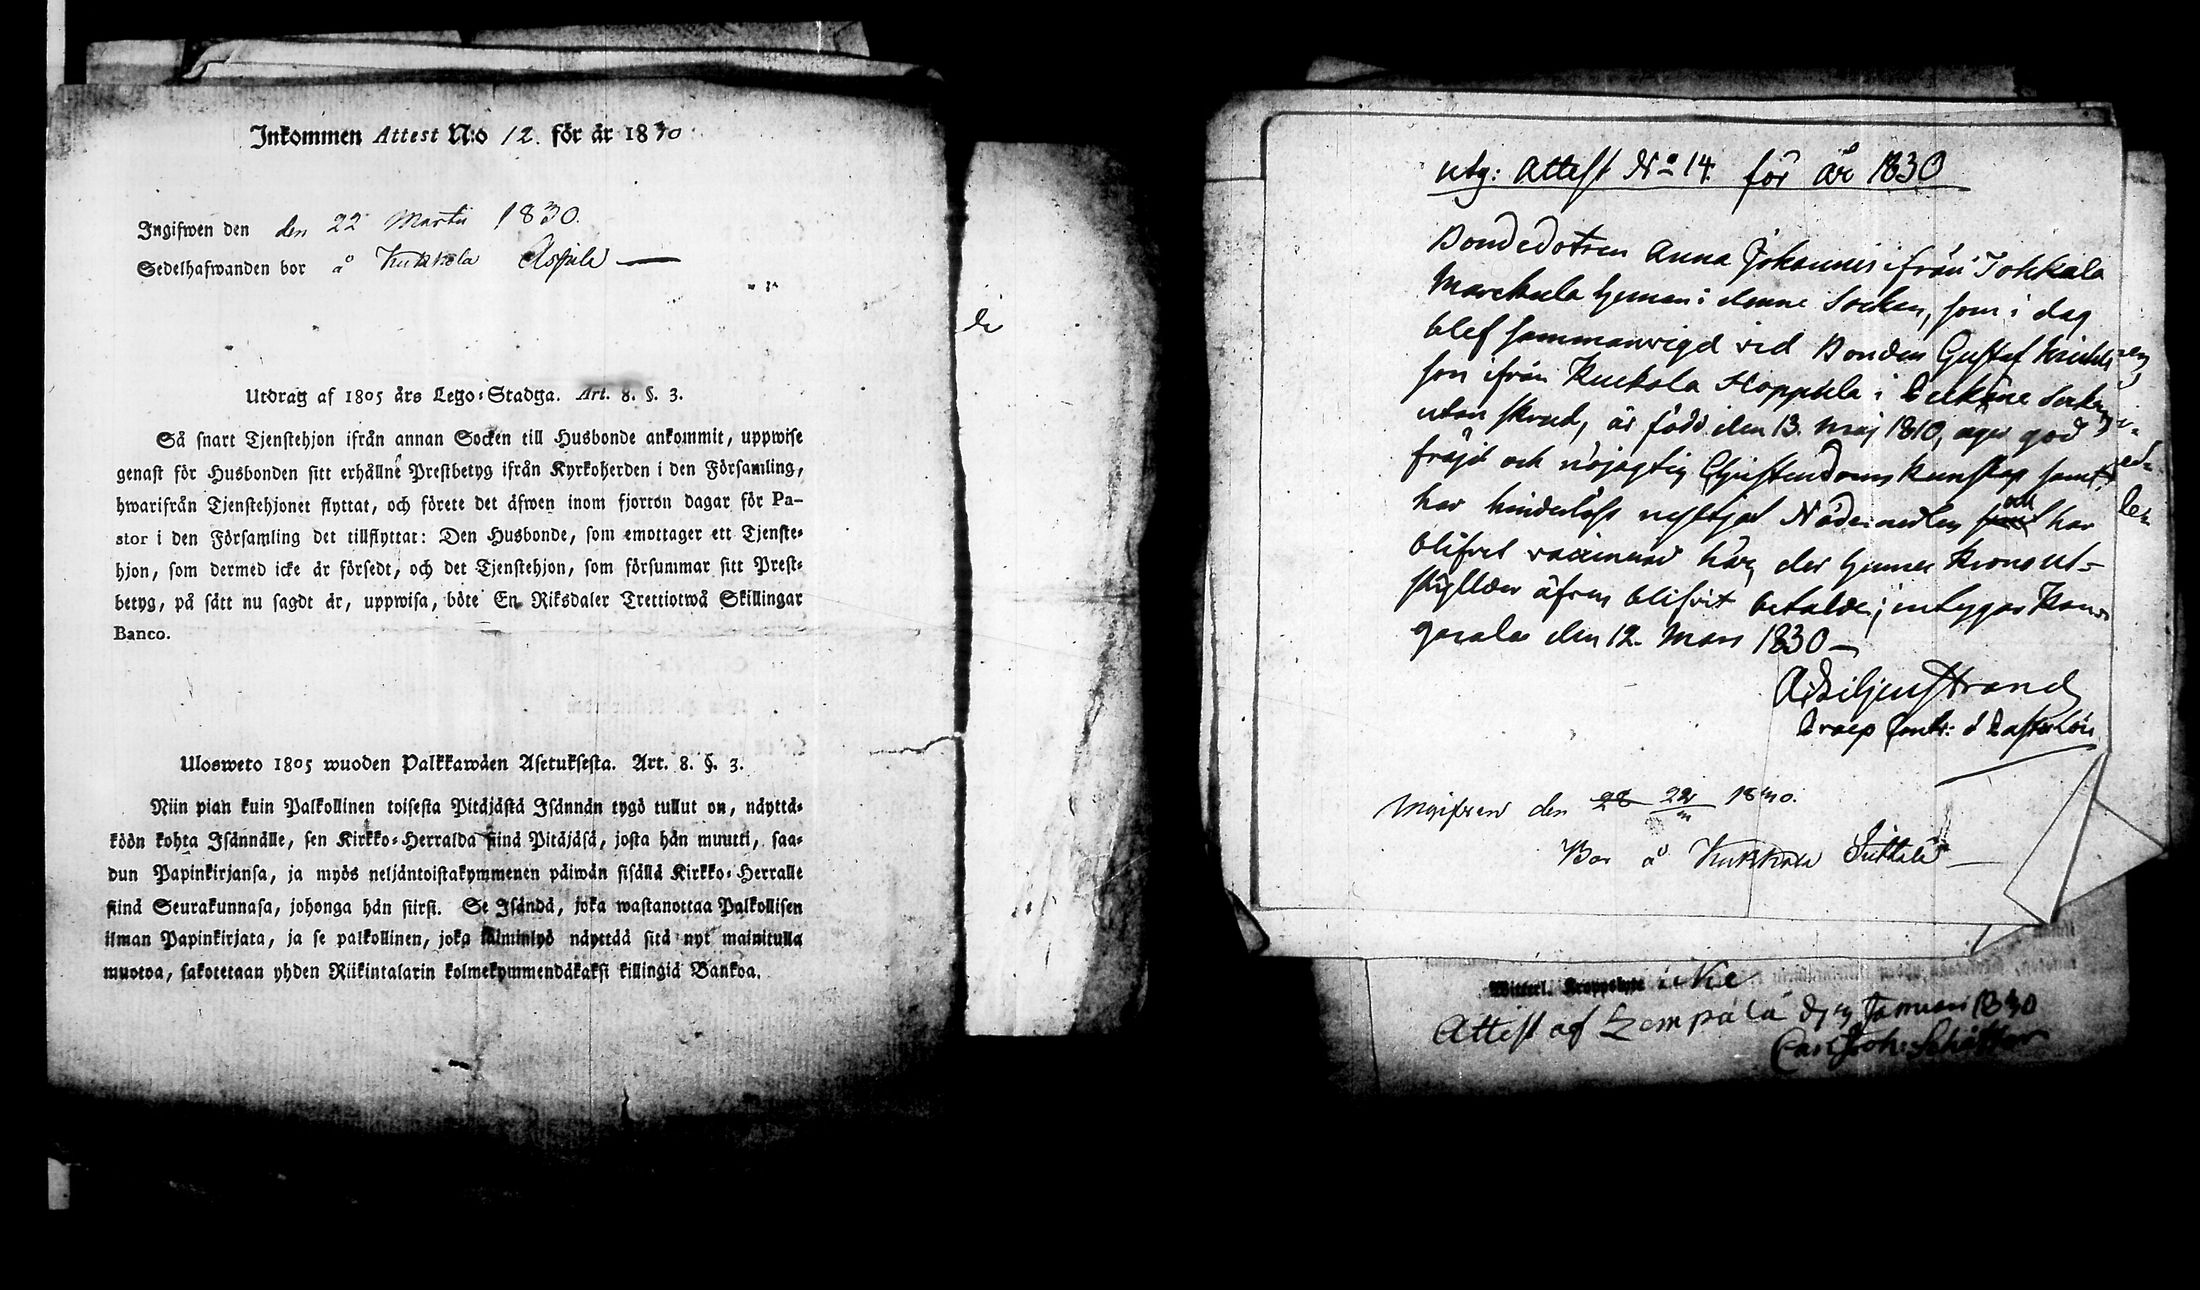 Inkommen Attest N:o 12. för år 1830
Ingifwen den den 22 Martii 1830.
Sedelhafwanden bor å Kukkola Aspila
Utdrag af 1805 års Lego-Stadga. Art. 8. §. 3.
Så snart Tjenstehjon ifrån annan Socken till Husbonde ankommit, uppwise
genast för Husbonden sitt erhållne Prestbetyg ifrån Kyrkoherden i den Församling,
hwarifrån Tjenstehjonet flyttat, och förete det äfwen inom fjorton dagar för Pa-
stor i den Församling det tillflyttat: Den Husbonde, som emottager ett Tjenste-
hjon, som dermed icke är försedt, och det Tjenstehjon, som försummar sitt Prest-
betyg, på sätt nu sagdt är, uppwisa, böte En Riksdaler Trettiotwå Skillingar
Banco.
Ulosweto 1805 wuoden Palkkawäen Asetuksesta. Art. 8. §. 3.
Niin pian kuin Palkollinen toisesta Pitäjästä Isännän tygö tullut on, näyttä-
köön kohta Isännälle, sen Kirkko-Herralda siinä Pitäjäsä, josta hän muutti, saa-
dun Papinkirjansa, ja myös neljäntoistakymmenen päiwän sisällä Kirkko-Herralle
siinä Seurakunnasa, johonga hän siirsi. Se Isändä, joka wastanottaa Palkollisen
ilman Papinkirjata, ja se palkollinen, joka laiminlyö näyttää sitä nyt mainitulla
muotoa, sakotetaan yhden Riikintalarin kolmekymmendäkaksi killingiä Bankoa.
utg: Attest No 14. för år 1830
Bondedotren Anna Johannis ifrån Tohkala
Marckula hemman i denne Socken, som i dag
blef sammanvigd vid Bonden Gustaf
son ifrån Kuckola Hoppula i Socken
utan skrud, är född den 13. Maj 1810, äger god
fräjd och nöjagtig Christendoms kunskap samt
har hinderlöst nyttjat Nådemedlen och har
blifvit vaccinerad här, der hennes Kronout-
skyllder äfven blifvit betalde; intygar Kan-
gasala den 12. Mars 1830
A Liljenstrand
Ingifven den 28 22 1830.
Bor å Kukkola Suttala
Witterl. Kroppslyte: Nie
Attest af Lempälä d. Januari 1830
Carl Joh: